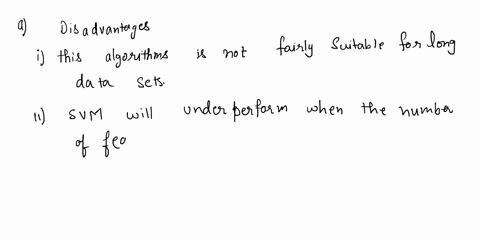 a) Disadvantages
i) this algorithms is not fairly suitable for long
data sets.
ii) SVM will underperform when the number
of fea